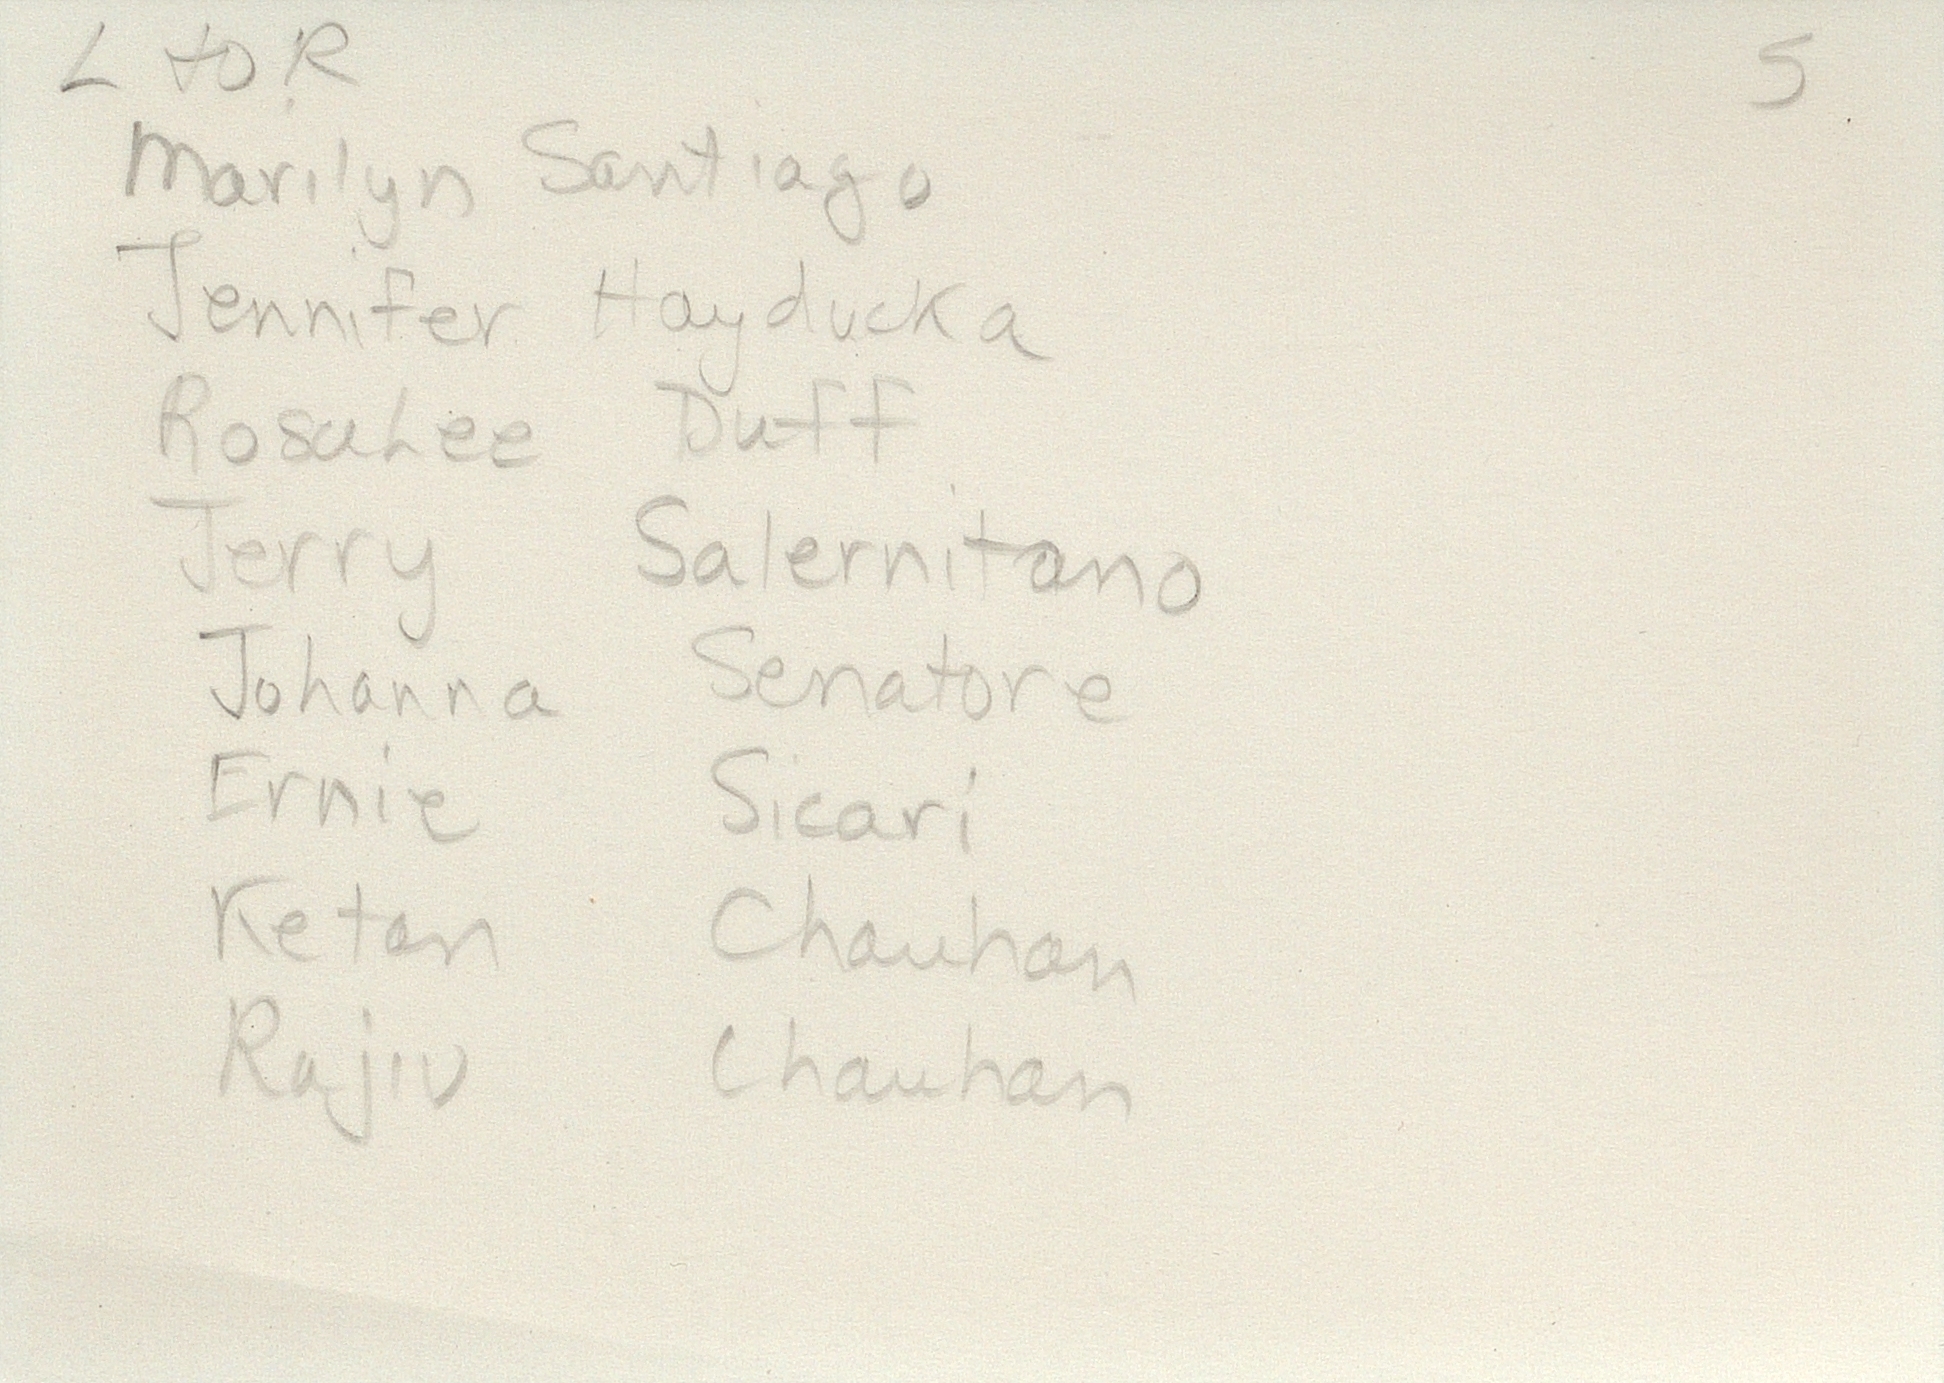 L to R 5
Marilyn Santiago
Jennifer Hayducka
RosaLee Duff
Jerry Salernitano
Johanna Senatore
Ernie Sicari
Ketan Chauhan
Rajiv Chauhan